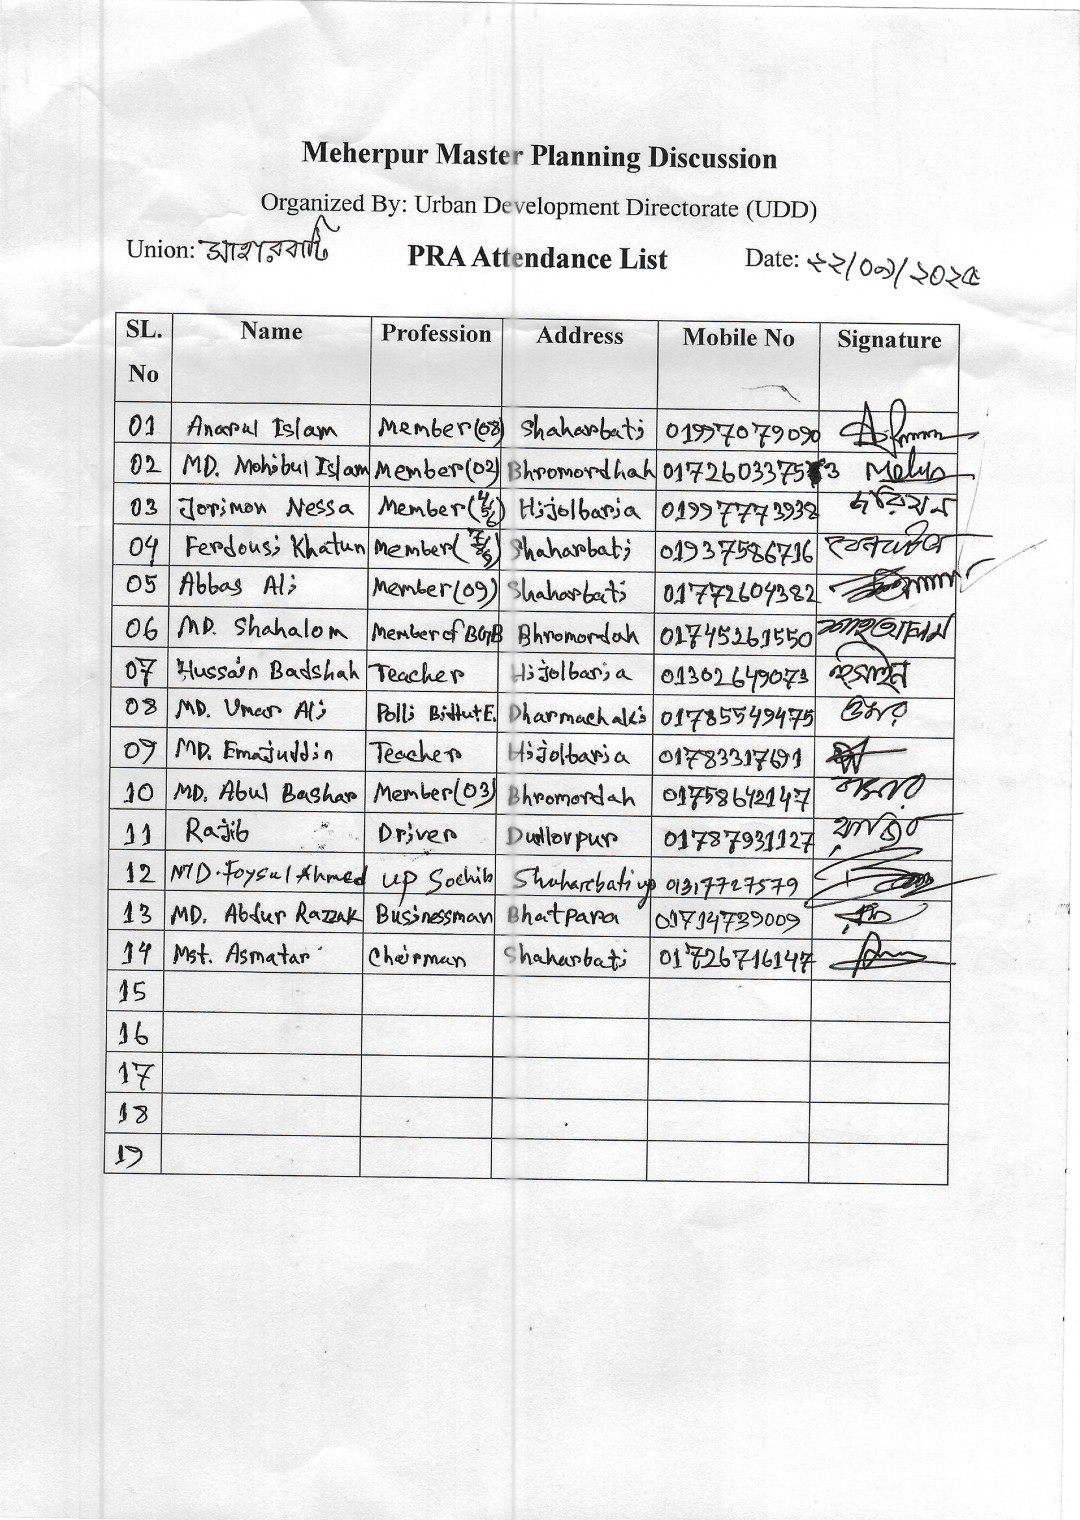 Meherpur Master Planning Discussion
Organized By: Urban Development Directorate (UDD)
Union: সাহারবাটি PRA Attendance List Date: ২২/০৯/২০২৫
SL. No Name Profession Address Mobile No Signature
01 Anarul Islam Member (08) Shaharbati 01997079090
02 MD. Mohibul Islam Member (02) Bhromordhah 3
03 Jorimon Nessa Member (4/5/6) Hijolbaria 01997773938 জরিমন
04 Ferdousi Khatun Member (7/8/9) Shaharbati 01937586716
05 Abbas Ali Member (09) Shaharbati 01772604382
06 MD. Shahalom Member of BGB Bhromordah 01745261550
07 Hussain Badshah Teacher Hijolbaria 01302649073
08 MD. Umar Ali Polli Bidhut E. Dharmachaki 01785549475 ওমর
09 MD. Emajuddin Teacher Hijolbaria 01783317691
10 MD. Abul Bashar Member (03) Bhromordah 01758642147 বাসার
11 Rajib Driver Dudlorpur 01787931127 রাজিব
12 MD. Foysal Ahmed UP Sochib Shaharbati up 01317727579
13 MD. Abdur Razzak Businessman Bhatpara 01714739009
14 Mst. Asmatar Chairman Shaharbati 01726716147
15
16
17
18
19